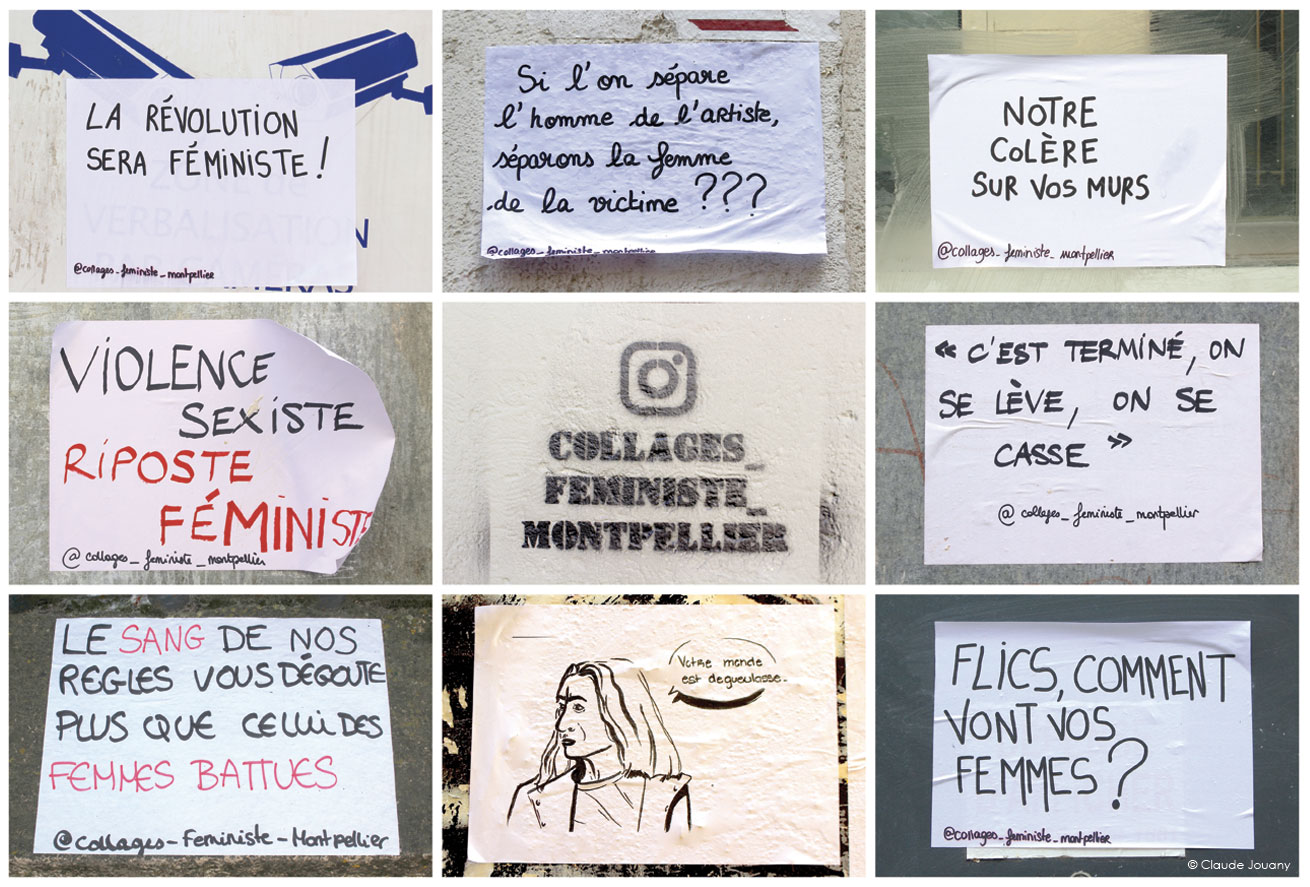 LA RÉVOLUTION
SERA FÉMINISTE !
ZONE de
VERBALISATION
PAR CAMÉRAS
@collages_feministe_montpellier
Si l'on sépare
l'homme de l'artiste,
séparons la femme
de la victime ???
@collages_feministe_montpellier
NOTRE
COLÈRE
SUR VOS MURS
@collages_feministe_montpellier
VIOLENCE
SEXISTE
RIPOSTE
FÉMINISTE
@collages_feministe_montpellier
COLLAGES_
FEMINISTE_
MONTPELLIER
« C'EST TERMINÉ, ON
SE LÈVE, ON SE
CASSE »
@collages_feministe_montpellier
LE SANG DE NOS
REGLES VOUS DÉGOUTE
PLUS QUE CELUI DES
FEMMES BATTUES
@collages_Feministe_Montpellier
Votre monde
est degueulasse.
FLICS, COMMENT
VONT VOS
FEMMES ?
@collages_feministe_montpellier
© Claude Jouany